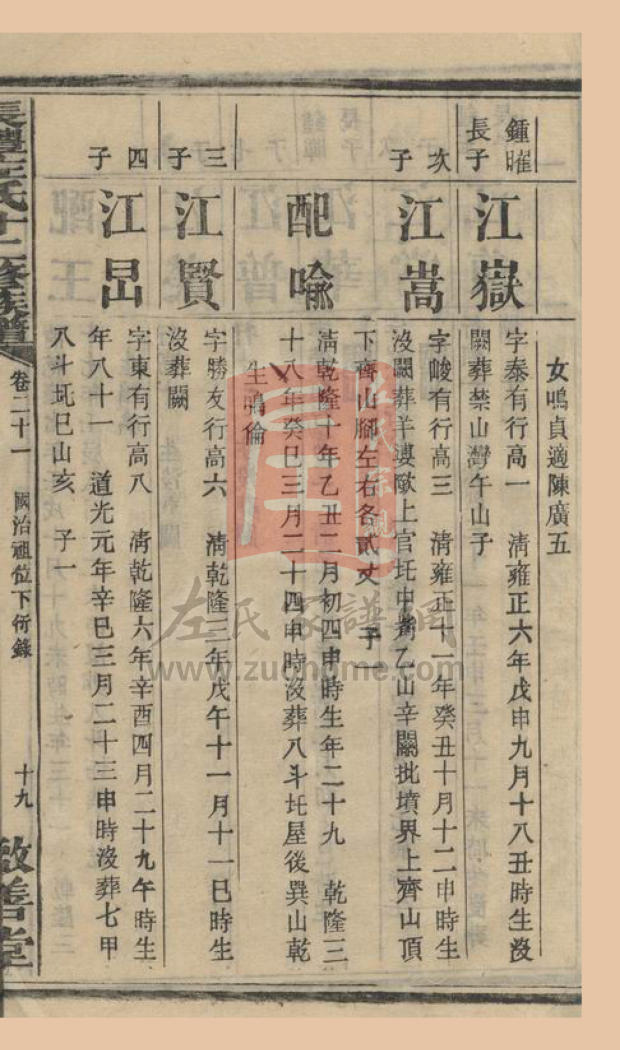 女鳴貞適陳廣五
鍾曜
長子
江嶽
字泰有行高一　清雍正六年戊申九月十八丑時生沒
闕葬禁山灣午山子
次子
江嵩
字峻有行高三　清雍正十一年癸丑十月十二申時生
沒闕葬羊婆歐上官圫中嵜乙山辛闕批墳界上齊山頂
下齊山腳左右各貳丈　子一
配喩
清乾隆十年乙丑二月初四申時生年二十九　乾隆三
十八年癸巳三月二十四申時沒葬八斗圫屋後巽山乾
生鳴倫
三子
江賢
字勝友行高六　清乾隆三年戊午十一月十一巳時生
沒葬闕
四子
江嵒
字東有行高八　清乾隆六年辛酉四月二十九午時生
年八十一　道光元年辛巳三月二十三申時沒葬七甲
八斗圫巳山亥　子一
長醴左氏十二修族譜
卷二十一
國治祖位下衍錄
十九
敦善堂
左氏宗親
左氏家譜網
www.zuohome.com